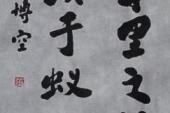 里之
于蚁
博空